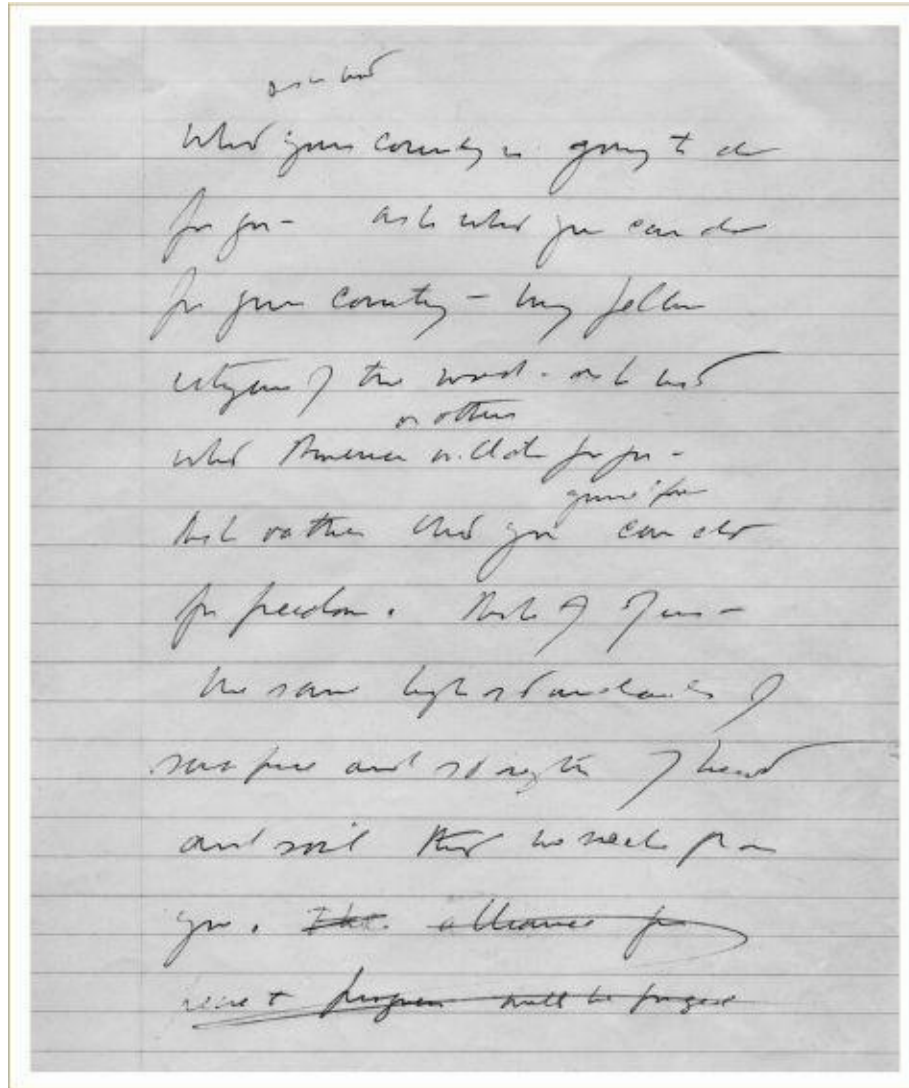 ask not
what your country is going to do
for you - ask what you can do
for your country - my fellow
citizens of the world - ask not
or others
what America will do for you -
ask rather what you can do
for freedom. Ask of us -
the same high standards of
sacrifice and strength of heart
and will that we seek from
you. The alliance for
peace & progress will be forged